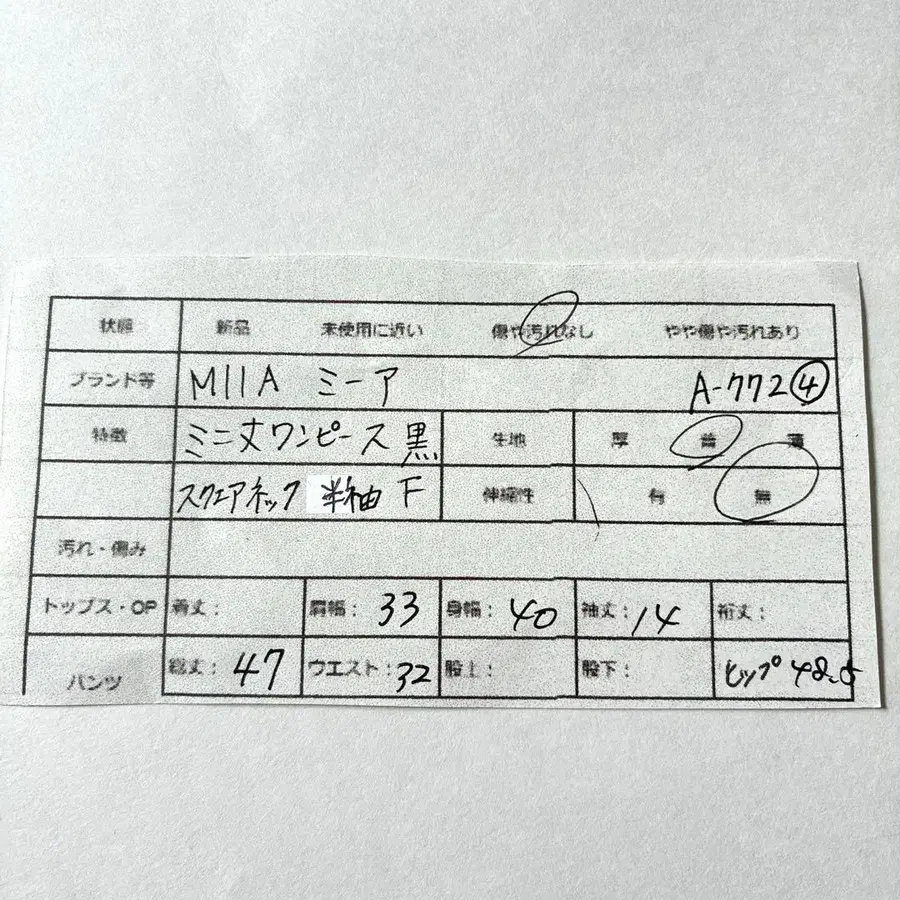 状態 新品 未使用に近い 傷や汚れなし やや傷や汚れあり
ブランド等 MIIA ミーア A-772④
特徴 ミニ丈ワンピース 黒 生地 厚 普 薄
スクエアネック 半袖 F 伸縮性 有 無
汚れ・傷み
トップス・OP 着丈: 肩幅: 33 身幅: 40 袖丈: 14 裄丈:
パンツ 総丈: 47 ウエスト: 32 股上: 股下: ヒップ 48.5